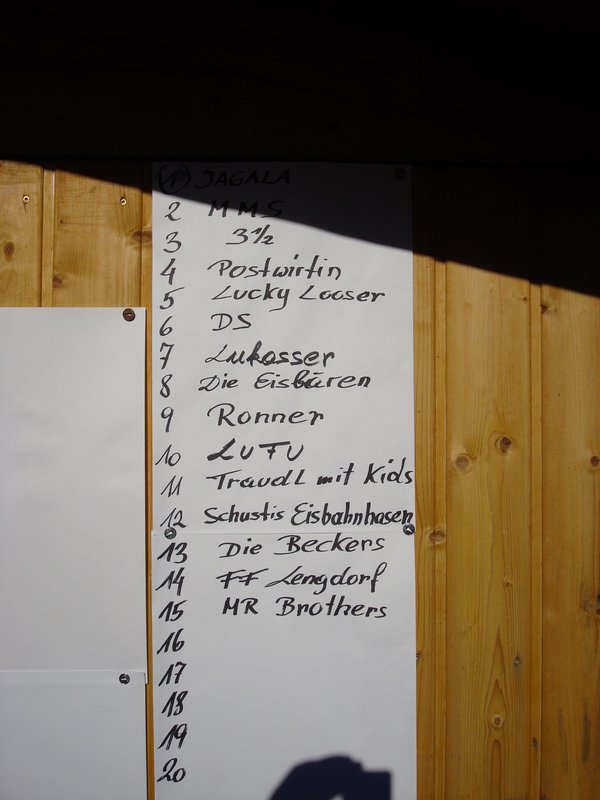 1 JAGALA
2 MMS
3 3½
4 Postwirtin
5 Lucky Looser
6 DS
7 Lukasser
8 Die Eisbären
9 Ronner
10 LUFU
11 Traudl mit Kids
12 Schustis Eisbahnhasen
13 Die Beckers
14 FF Lengdorf
15 MR Brothers
16
17
18
19
20